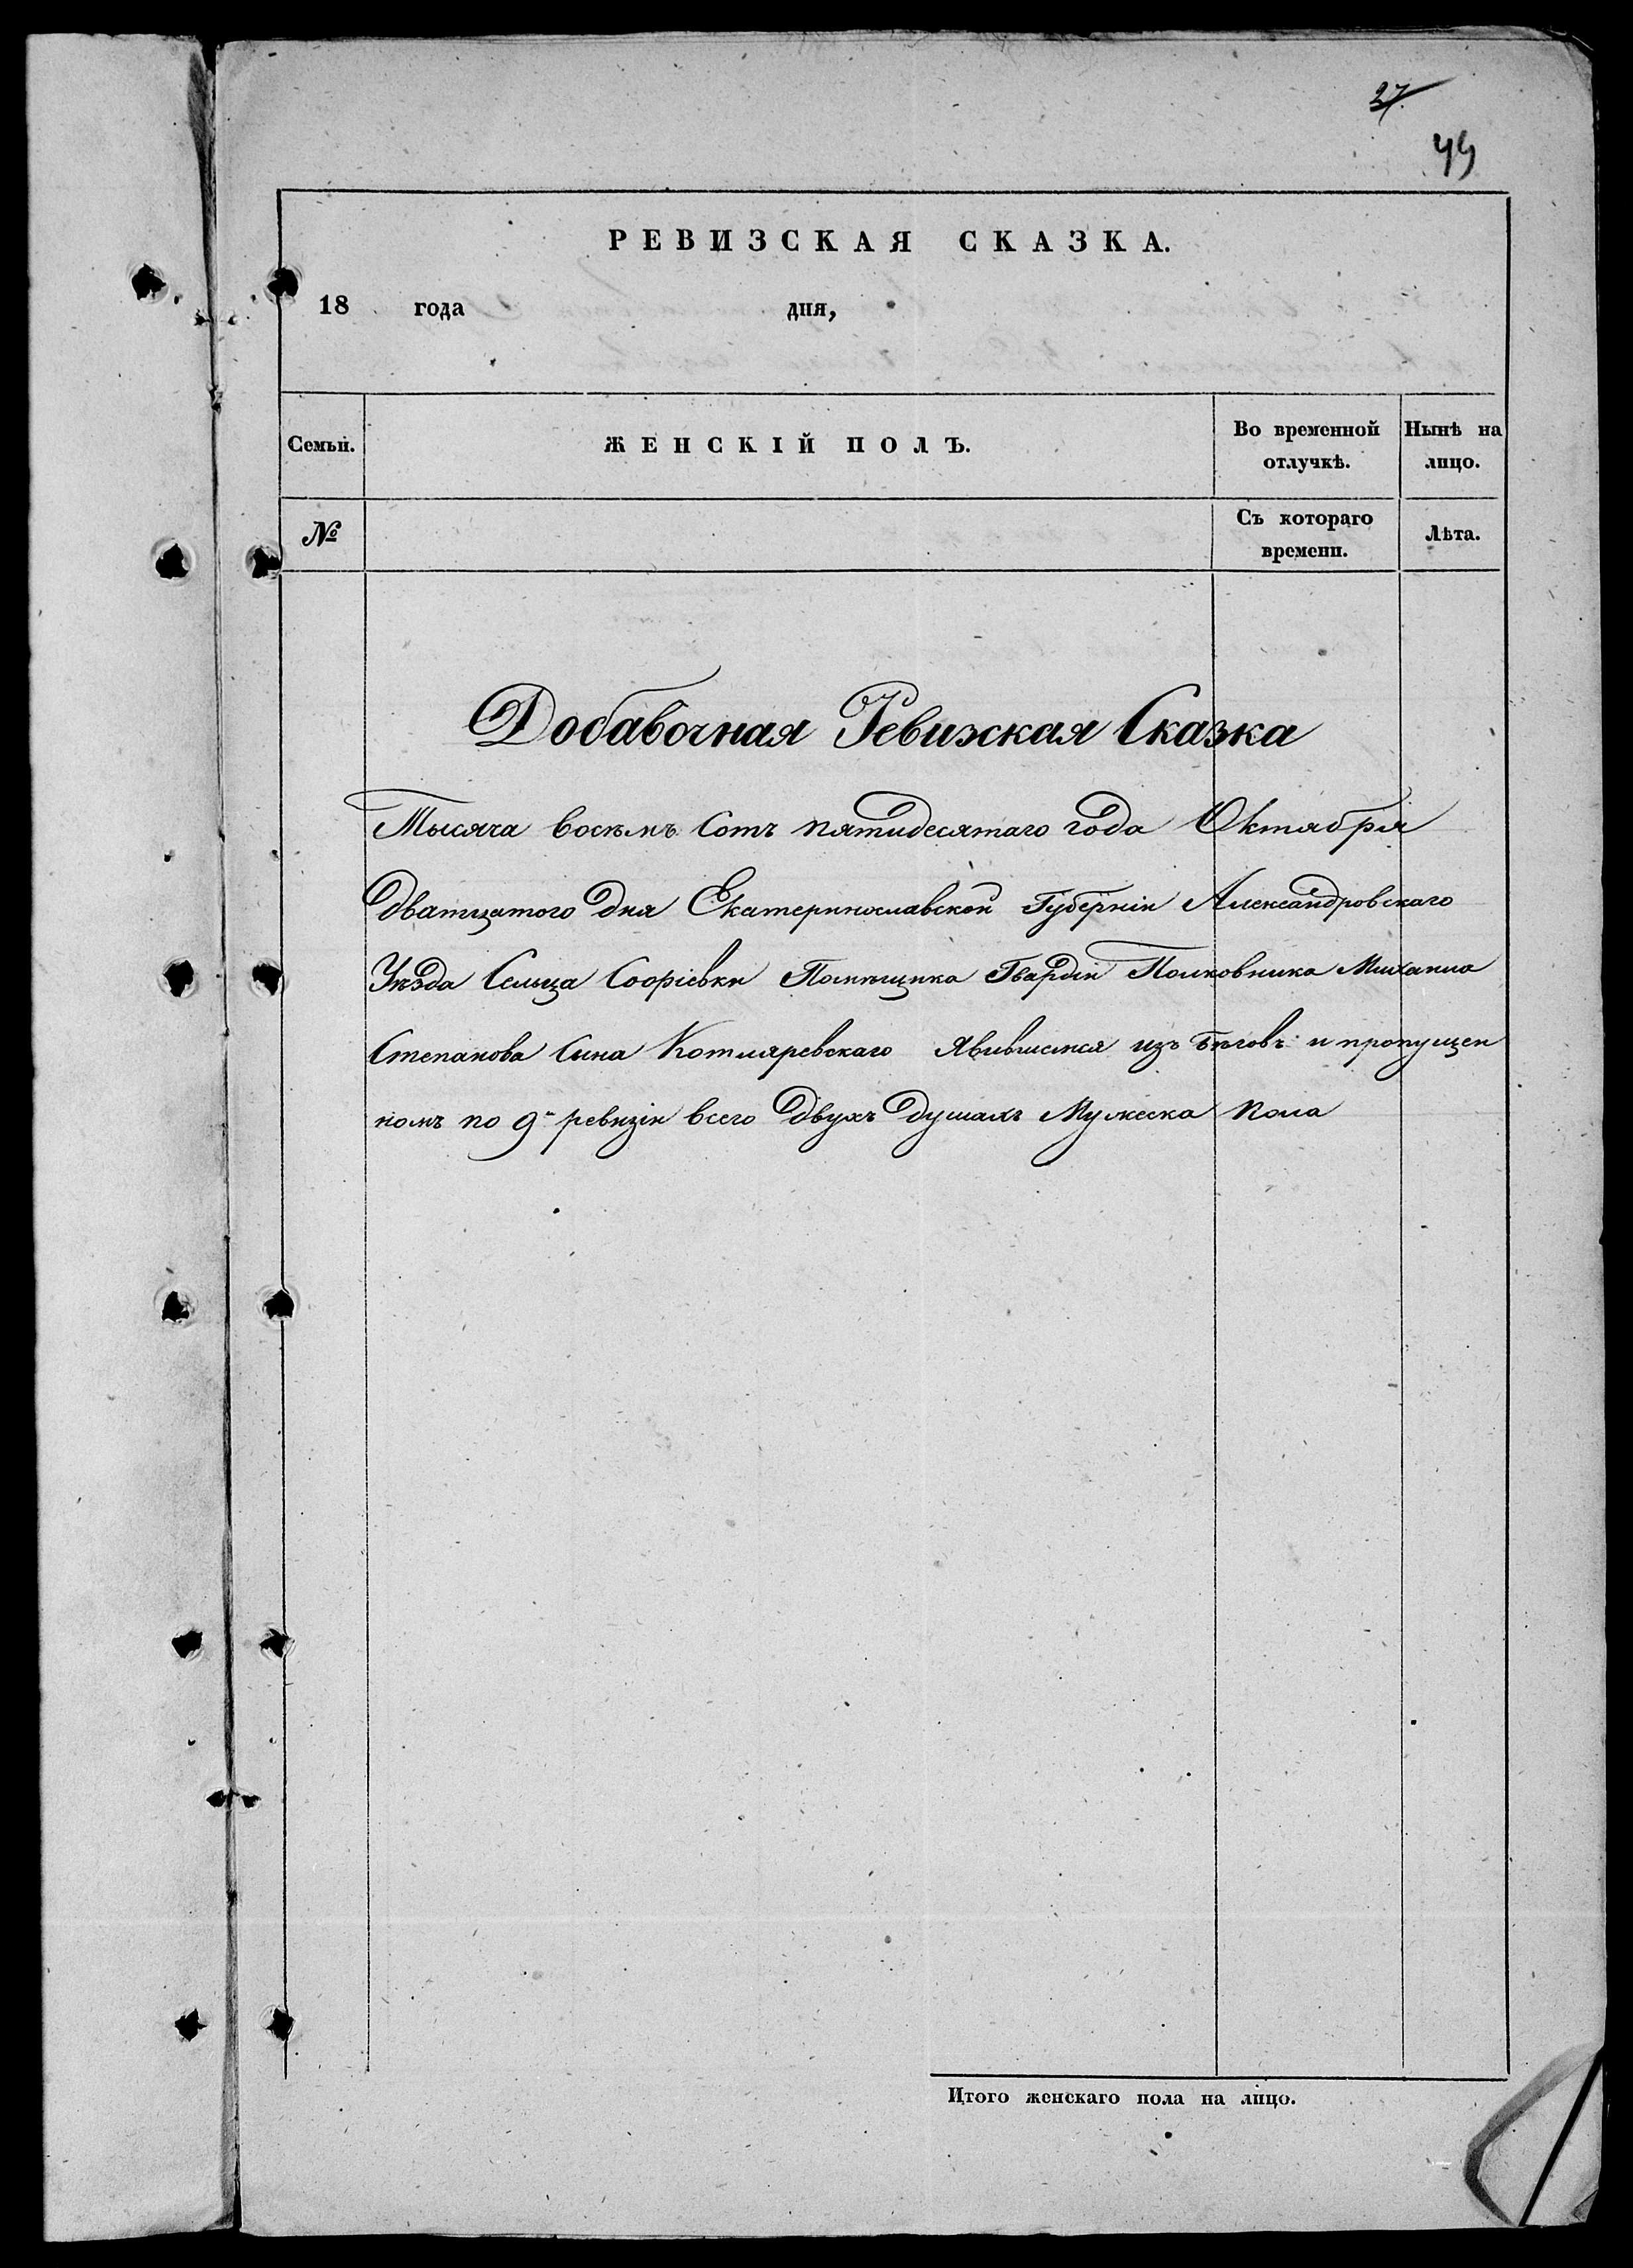 27
49
РЕВИЗСКАЯ СКАЗКА.
18 года дня,
Семьи. ЖЕНСКІЙ ПОЛЪ. Во временной отлучкѣ. Нынѣ на лицо.
№ Съ котораго времени. Лѣта.
Добавочная Ревизская Сказка
Тысяча восѣмъ Сотъ пятидесятаго года Октября
дватцатого дня Екатеринославской Губерніи Александровскаго
Уѣзда Сельца Софіевки Помѣщика Гвардіи Полковника Михаила
Степанова Сына Котляревскаго явившимся изъ бѣговъ и пропущен
номъ по 9й ревизіи всего двухъ душахъ Мужеска пола
Итого женскаго пола на лицо.